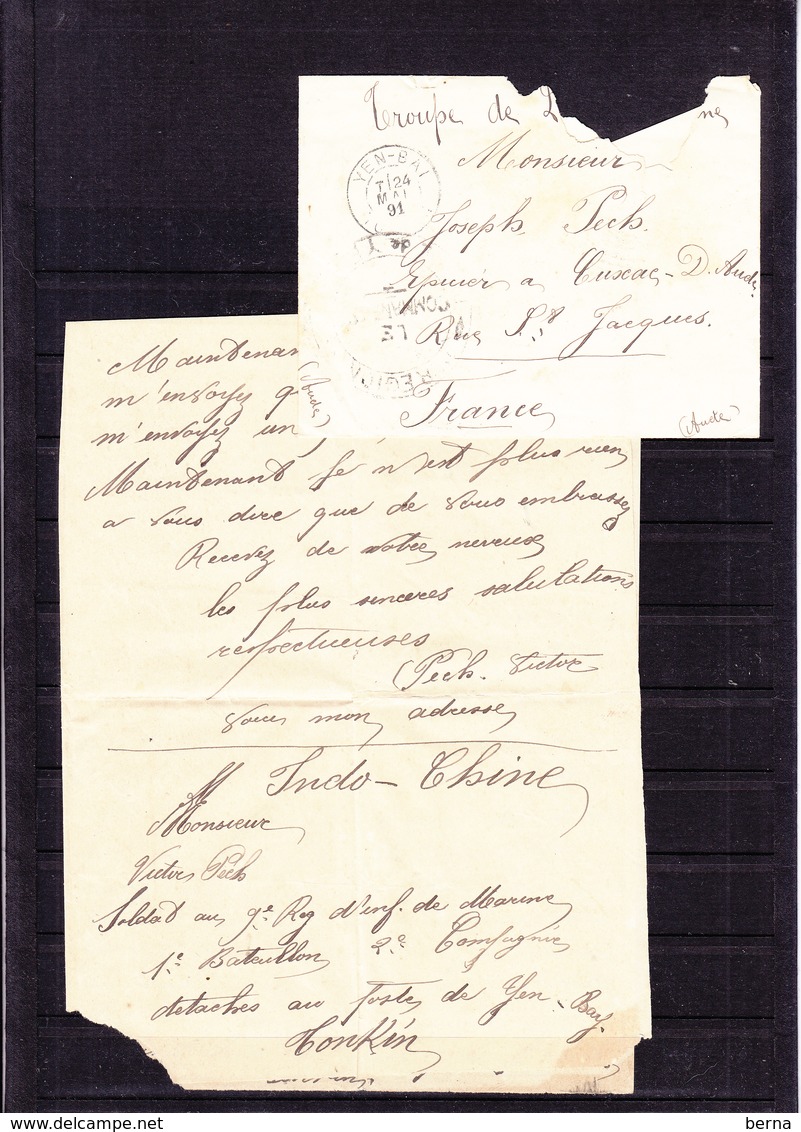 Troupe de
ne
Monsieur
YEN-BAI
T/24
MAI
91
Joseph Pech
Epicier a Cuxac-D. Aude
Rue St Jacques.
France
(Aude)
(Aude)
Maintenant
m'envoyez
m'envoyez un
Maintenant je n'est plus rien
a vous dire que de vous embrassez
Recevez de votre neveux
les plus sinceres salutations
respectueuses
Pech Victor
mon adresse
Indo-Chine
M
Monsieur
Victor Pech
Soldat au 9e Reg d'inf. de Marine
1e Bataillon 2e Compagnie
detaches au poste de Yen-Bay
Tonkin
berna